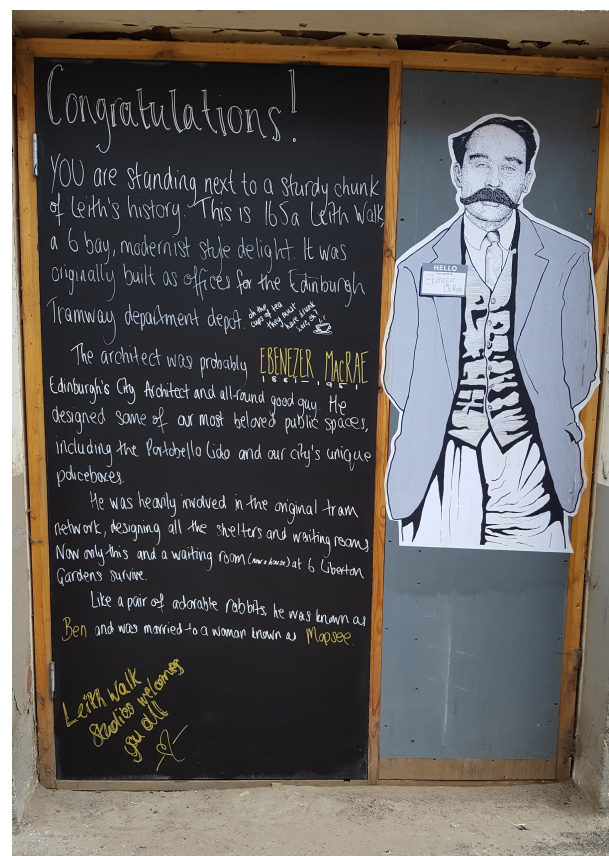 Congratulations!
YOU are standing next to a sturdy chunk
of Leith's history. This is 165a Leith Walk,
a 6 bay, modernist style delight. It was
originally built as offices for the Edinburgh
Tramway department depot.
oh the
cups of tea
they must
have drunk
here eh?
The architect was probably EBENEZER MacRAE
1881-1951
Edinburgh's City Architect and all-round good guy. He
designed some of our most beloved public spaces,
including the Portobello Lido and our city's unique
policeboxes.
He was heavily involved in the original tram
network, designing all the shelters and waiting rooms.
Now only this and a waiting room (now a house) at 6 Liberton
Gardens survive.
Like a pair of adorable rabbits he was known as
Ben and was married to a woman known as Mopsee.
Leith Walk
Studios welcomes
you all
HELLO
Ebenezer
McRae